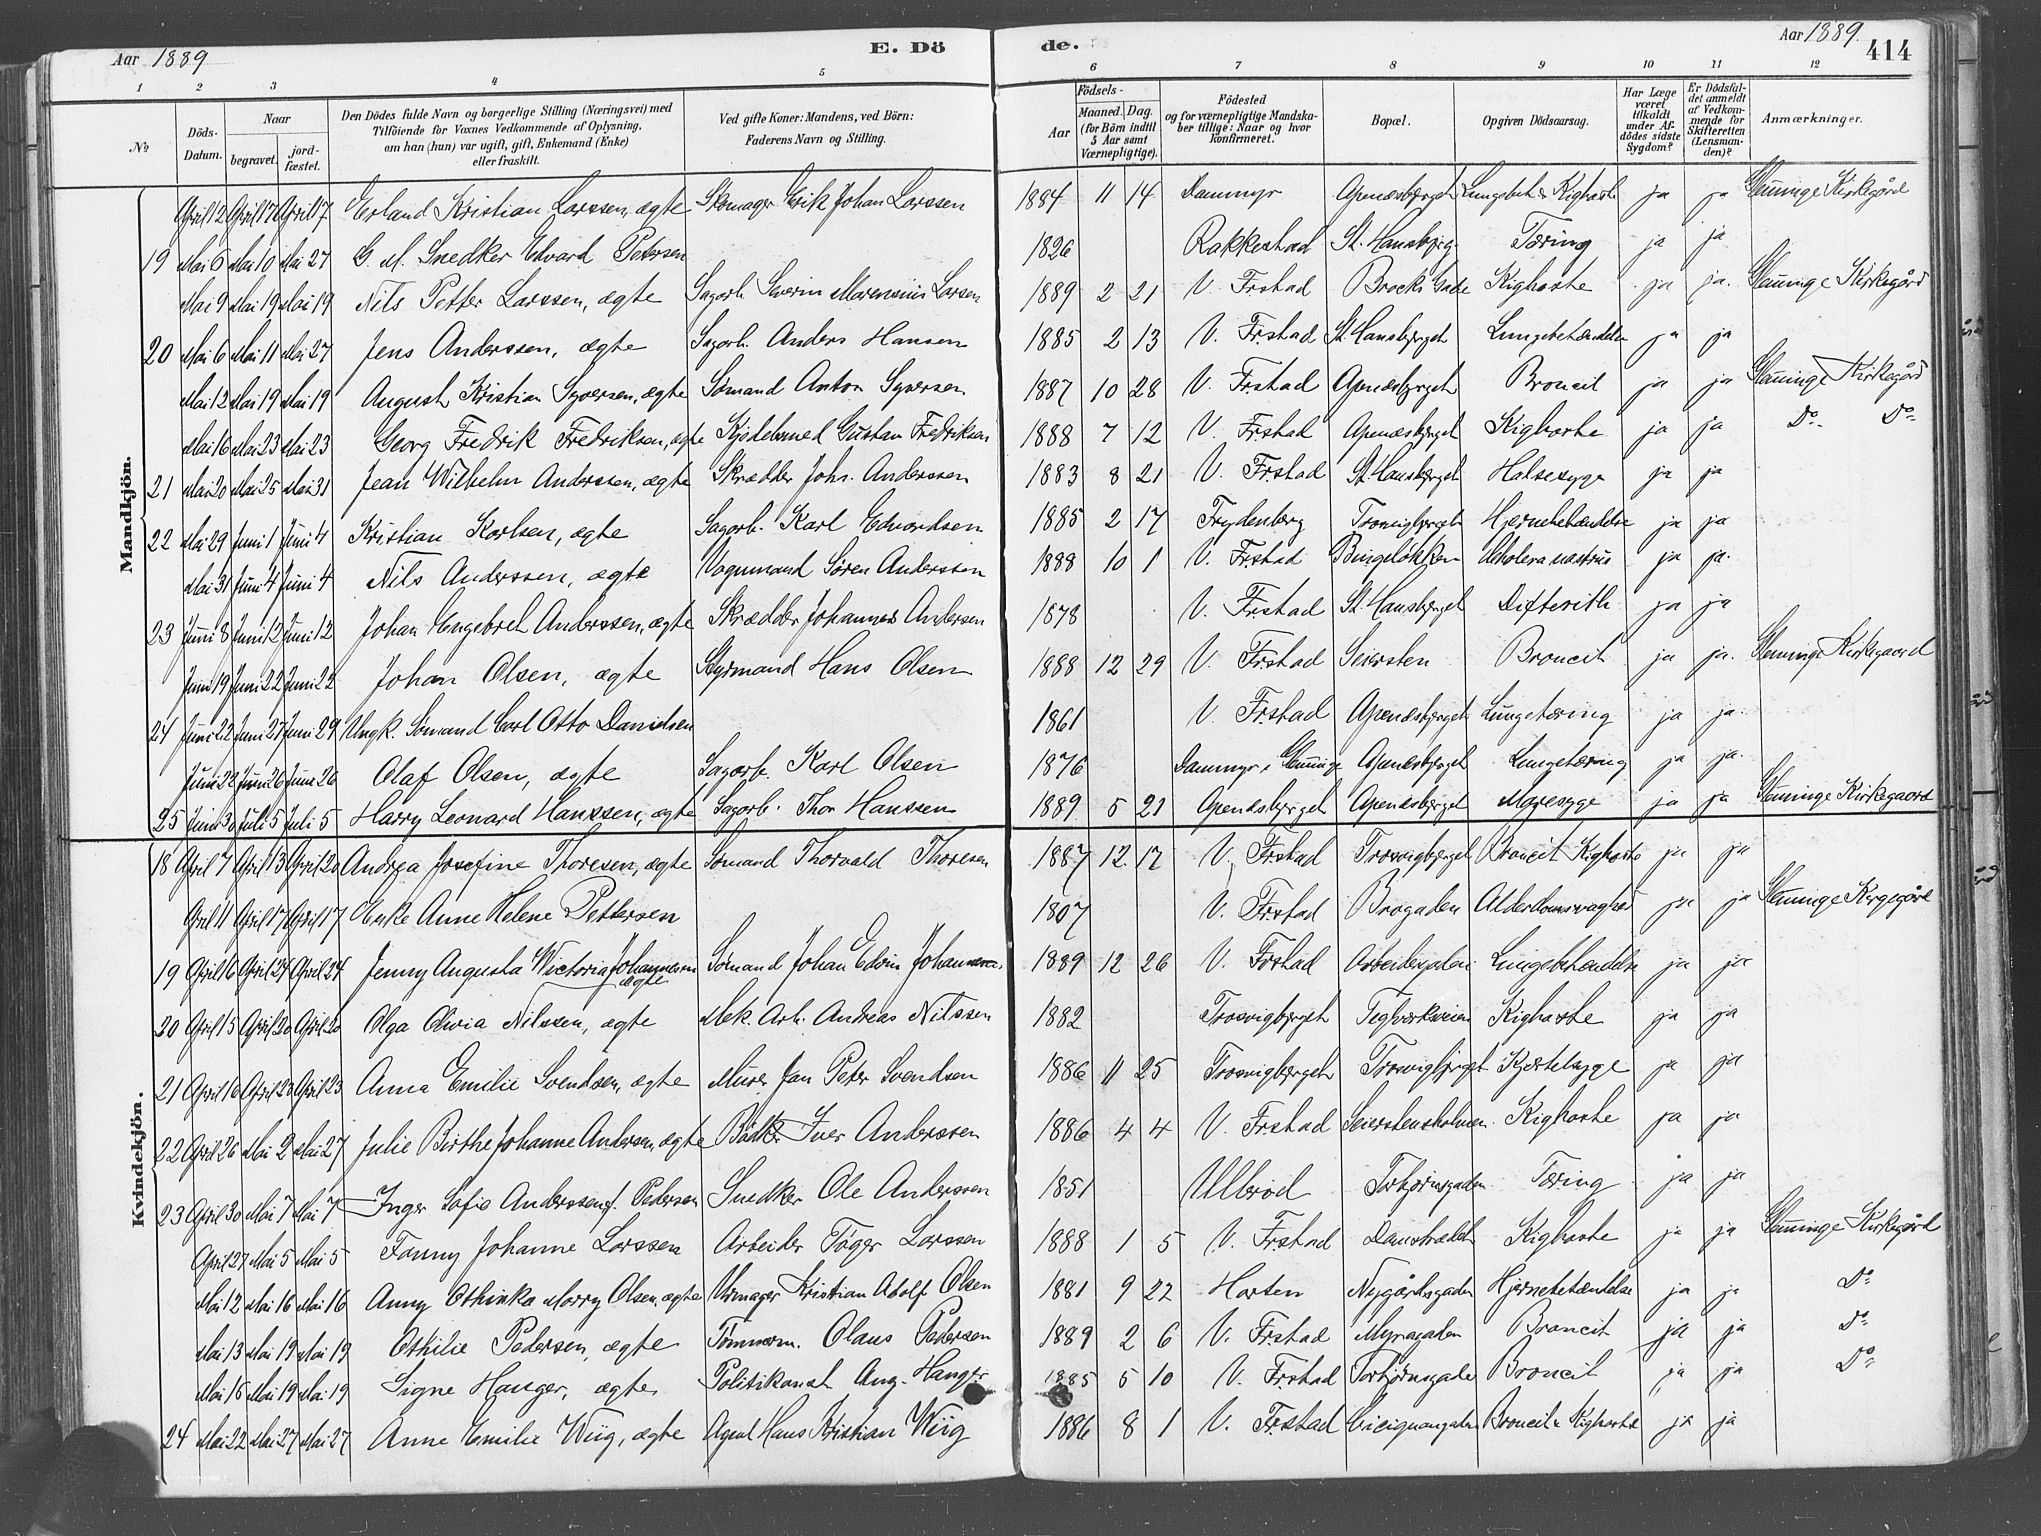 Aar 1889
E. Dö
de.
Aar 1889.
414
1 2 3 4 5 6 7 8 9 10 11 12
No
Döds-Datum.
Naar
begravet.
jord-fæstet.
Den Dödes fulde Navn og borgerlige Stilling (Næringsvei) med Tilföiende for Voxnes Vedkommende af Oplysning, om han (hun) var ugift, gift, Enkemand (Enke) eller fraskilt.
Ved gifte Koner: Mandens, ved Börn: Faderens Navn og Stilling.
Födsels-
Aar
Maaned.
Dag.
(for Börn indtil 5 Aar samt Værnepligtige).
Födested og for værnepligtige Mandskaber tillige: Naar og hvor konfirmeret.
Bopæl.
Opgiven Dödsaarsag.
Har Læge været tilkaldt under Afdödes sidste Sygdom?
Er Dödsfaldet anmeldt af Vedkommende for Skifteretten (Lensmanden)?
Anmærkninger.
Mandkjön.
April 12 April 17 April 17 Erland Kristian Larssen, ægte Skomager Erik Johan Larssen 1884 11 14 Dammyr Apenæsbjerget Lungebet & Kighoste ja ja Glemminge Kirkegård
19 Mai 6 Mai 10 Mai 27 G. M. Snedker Edvard Petersen 1826 Rakkestad St. Hansbjerg. Tæring ja ja
Mai 9 Mai 19 Mai 19 Nils Petter Larssen, ægte Sagarb. Severin Marensius Larsen 1889 2 21 V. Frstad Brocks Gade Kighoste ja ja. Glemminge Kirkegård
20 Mai 6 Mai 11 Mai 27 Jens Anderssen, ægte Sagarb. Anders Hansen 1885 2 13 V. Frstad St. Hansbjerget Lungebetændelse ja ja
Mai 12 Mai 19 Mai 19 August Kristian Syversen, ægte Sømand Anton Syversen 1887 10 28 V. Frstad Apenæsbjerget Broncit ja ja Glemminge Kirkegård
Mai 16 Mai 23 Mai 23 Georg Fredrik Fredriksen, ægte Kjedelsmed Gustav Fredriksen 1888 7 12 V. Frstad Apenæsbjerget Kighoste ja ja Do. Do.
21 Mai 20 Mai 25 Mai 31 Jean Wilhelm Anderssen, ægte Skrædder Johs. Anderssen 1883 8 21 V. Frstad St. Hansbjerget Halsesyge ja ja
22 Mai 29 Juni 1 Juni 4 Kristian Karlsen, ægte Sagarb. Karl Edvardsen 1885 2 17 Frydenberg Trosvigbjerget Hjernebetændelse ja ja
Mai 31 Juni 4 Juni 4 Nils Anderssen, ægte Vognmand Søren Anderssen 1888 10 1 V. Frstad Bingeløkken Cholera nostras ja ja.
23 Juni 8 Juni 12 Juni 12 Johan Engebret Anderssen, ægte Skrædder Johannes Andersen 1878 V. Frstad St. Hansbjerget Difterith ja ja
Juni 19 Juni 22 Juni 22 Johan Olsen, ægte Styrmand Hans Olsen 1888 12 29 V. Frstad Seiersten Broncit ja ja. Glemminge Kirkegaard
24 Juni 22 Juni 27 Juni 29 Ungk. Sømand Carl Otto Danielsen 1861 V. Frstad Apenæsbjerget Lungetæring ja ja.
Juni 22 Juni 26 Juni 26 Olaf Olsen, ægte Sagarb. Karl Olsen 1876 Dammyr, Glemminge Apenæsbjerget Lungetæring ja ja.
25 Juni 30 Juli 5 Juli 5 Harry Leonard Hanssen, ægte Sagarb. Thor Hanssen 1889 5 21 Apenæsbjerget Apenæsbjerget Mavesyge ja ja Glemminge Kirkegaard
Kvindekjön.
18 April 7 April 13 April 20 Andrea Josefine Thoresen, ægte Sømand Thorvald Thoresen 1887 12 17 V. Frstad Trosvigbjerget Broncit Kighoste ja ja
April 11 April 17 April 17 Enke Anne Helene Pettersen 1807 V. Frstad Brogaden Alderdomssvaghed ja ja Glemminge Kirkegård
19 April 16 April 24 April 24 Jenny Augusta Wictoria Johannesen ægte Sømand Johan Edvin Johannesen 1889 12 26 V. Frstad Arbeidergaden Lungebetændelse ja ja
20 April 15 April 20 April 20 Olga Olivia Nilssen, ægte Mek. Arb. Andreas Nilssen 1882 Trosvigbjerget Teglværksveien Kighoste ja ja
21 April 16 April 23 April 23 Anna Emilie Svendsen, ægte Murer Jan Peter Svendsen 1886 11 25 Trosvigbjerget Trosvigbjerget Kjertelsyge ja ja
22 April 26 Mai 2 Mai 27 Julie Birthe Johanne Andersen, ægte Bødker Iver Anderssen 1886 4 4 V. Frstad Seierstensholmen Kighoste ja ja
23 April 30 Mai 7 Mai 7 Inger Sofie Anderssen f. Pedersen Snedker Ole Anderssen 1851 Ullerød Torbjørnsgaden Tæring ja ja
April 27 Mai 5 Mai 5 Fanny Johanne Larssen Arbeider Tøger Larssen 1888 1 5 V. Frstad Damstrædet Kighoste ja ja Glemminge Kirkegård
Mai 12 Mai 16 Mai 16 Anny Othinka Marry Olsen, ægte Urmager Kristian Adolf Olsen 1881 9 22 Horten Nygårdsgaden Hjernebetændelse ja ja Do.
Mai 13 Mai 19 Mai 19 Othilie Pedersen, ægte Tømmerm. Olaus Pedersen 1889 2 6 V. Frstad Myragaden Broncit ja ja Do.
Mai 15 Mai 19 Mai 19 Signe Hanger, ægte Politikonst. Aug. Hanger 1885 5 10 V. Frstad Torbjørnsgade Broncit ja ja Do.
24 Mai 22 Mai 27 Mai 27 Anne Emilie Wiig, ægte Agent Hans Kristian Wiig 1886 8 1 V. Frstad Cicignongaden Broncit & Kighoste ja ja